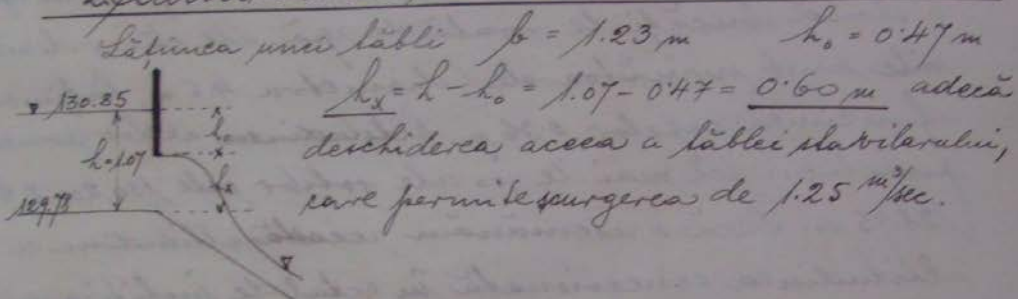 Lățimea unei tăbli b = 1.23 m h₀ = 0.47 m
hₓ = h - h₀ = 1.07 - 0.47 = 0.60 m adecă
deschiderea aceea a tăblei stavilarului,
care permite scurgerea de 1.25 m³/sec.
130.85
h₀
h=1.07
hₓ
129.78